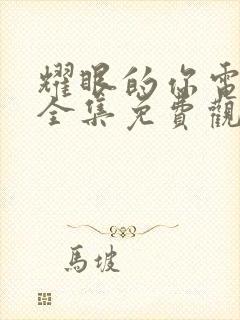 耀眼的你電
全集免費觀
馬坡